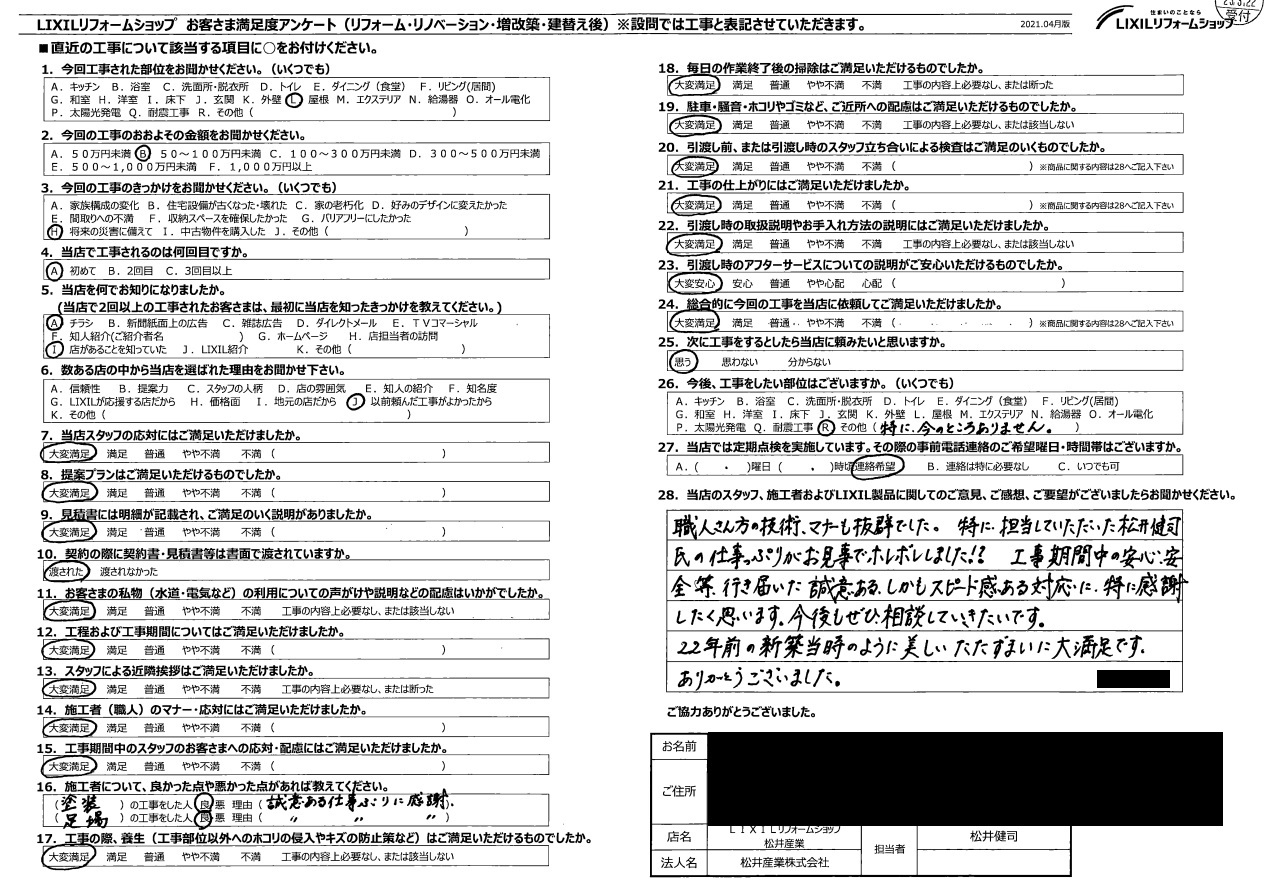 LIXILリフォームショップ お客さま満足度アンケート（リフォーム・リノベーション・増改築・建替え後）※設問では工事と表記させていただきます。
2021.04月版
住まいのことなら
LIXILリフォームショップ
受付
■直近の工事について該当する項目に○をお付けください。
1．今回工事された部位をお聞かせください。（いくつでも）
A．キッチン B．浴室 C．洗面所・脱衣所 D．トイレ E．ダイニング（食堂） F．リビング(居間)
G．和室 H．洋室 I．床下 J．玄関 K．外壁 L 屋根 M．エクステリア N．給湯器 O．オール電化
P．太陽光発電 Q．耐震工事 R．その他（ ）
2．今回の工事のおおよその金額をお聞かせください。
A．50万円未満 B 50～100万円未満 C．100～300万円未満 D．300～500万円未満
E．500～1,000万円未満 F．1,000万円以上
3．今回の工事のきっかけをお聞かせください。（いくつでも）
A．家族構成の変化 B．住宅設備が古くなった・壊れた C．家の老朽化 D．好みのデザインに変えたかった
E．間取りへの不満 F．収納スペースを確保したかった G．バリアフリーにしたかった
H 将来の災害に備えて I．中古物件を購入した J．その他（ ）
4．当店で工事されるのは何回目ですか。
A 初めて B．2回目 C．3回目以上
5．当店を何でお知りになりましたか。
(当店で2回以上の工事されたお客さまは、最初に当店を知ったきっかけを教えてください。)
A チラシ B．新聞紙面上の広告 C．雑誌広告 D．ダイレクトメール E．TVコマーシャル
F．知人紹介(ご紹介者名 ) G．ホームページ H．店担当者の訪問
I 店があることを知っていた J．LIXIL紹介 K．その他（ ）
6．数ある店の中から当店を選ばれた理由をお聞かせ下さい。
A．信頼性 B．提案力 C．スタッフの人柄 D．店の雰囲気 E．知人の紹介 F．知名度
G．LIXILが応援する店だから H．価格面 I．地元の店だから J 以前頼んだ工事がよかったから
K．その他（ ）
7．当店スタッフの応対にはご満足いただけましたか。
大変満足 満足 普通 やや不満 不満（ ）
8．提案プランはご満足いただけるものでしたか。
大変満足 満足 普通 やや不満 不満（ ）
9．見積書には明細が記載され、ご満足のいく説明がありましたか。
大変満足 満足 普通 やや不満 不満（ ）
10．契約の際に契約書・見積書等は書面で渡されていますか。
渡された 渡されなかった
11．お客さまの私物（水道・電気など）の利用についての声がけや説明などの配慮はいかがでしたか。
大変満足 満足 普通 やや不満 不満 工事の内容上必要なし、または該当しない
12．工程および工事期間についてはご満足いただけましたか。
大変満足 満足 普通 やや不満 不満（ ）
13．スタッフによる近隣挨拶はご満足いただけましたか。
大変満足 満足 普通 やや不満 不満 工事の内容上必要なし、または断った
14．施工者（職人）のマナー・応対にはご満足いただけましたか。
大変満足 満足 普通 やや不満 不満（ ）
15．工事期間中のスタッフのお客さまへの応対・配慮にはご満足いただけましたか。
大変満足 満足 普通 やや不満 不満（ ）
16．施工者について、良かった点や悪かった点があれば教えてください。
（塗装 ）の工事をした人 良 悪 理由（ 誠意ある仕事ぶりに感謝．）
（足場 ）の工事をした人 良 悪 理由（ 〃 〃 〃 ）
17．工事の際、養生（工事部位以外へのホコリの侵入やキズの防止策など）はご満足いただけるものでしたか。
大変満足 満足 普通 やや不満 不満 工事の内容上必要なし、または該当しない
18．毎日の作業終了後の掃除はご満足いただけるものでしたか。
大変満足 満足 普通 やや不満 不満 工事の内容上必要なし、または断った
19．駐車・騒音・ホコリやゴミなど、ご近所への配慮はご満足いただけるものでしたか。
大変満足 満足 普通 やや不満 不満 工事の内容上必要なし、または該当しない
20．引渡し前、または引渡し時のスタッフ立ち合いによる検査はご満足のいくものでしたか。
大変満足 満足 普通 やや不満 不満（ ）※商品に関する内容は28へご記入下さい
21．工事の仕上がりにはご満足いただけましたか。
大変満足 満足 普通 やや不満 不満（ ）※商品に関する内容は28へご記入下さい
22．引渡し時の取扱説明やお手入れ方法の説明にはご満足いただけましたか。
大変満足 満足 普通 やや不満 不満 工事の内容上必要なし、または該当しない
23．引渡し時のアフターサービスについての説明がご安心いただけるものでしたか。
大変安心 安心 普通 やや心配 心配（ ）
24．総合的に今回の工事を当店に依頼してご満足いただけましたか。
大変満足 満足 普通 やや不満 不満（ ）※商品に関する内容は28へご記入下さい
25．次に工事をするとしたら当店に頼みたいと思いますか。
思う 思わない 分からない
26．今後、工事をしたい部位はございますか。（いくつでも）
A．キッチン B．浴室 C．洗面所・脱衣所 D．トイレ E．ダイニング（食堂） F．リビング(居間)
G．和室 H．洋室 I．床下 J．玄関 K．外壁 L．屋根 M．エクステリア N．給湯器 O．オール電化
P．太陽光発電 Q．耐震工事 R その他（特に、今のところありません。）
27．当店では定期点検を実施しています。その際の事前電話連絡のご希望曜日・時間帯はございますか。
A．（ ・ )曜日（ ・ )時頃連絡希望 B．連絡は特に必要なし C．いつでも可
28．当店のスタッフ、施工者およびLIXIL製品に関してのご意見、ご感想、ご要望がございましたらお聞かせください。
職人さん方の技術、マナーも抜群でした。 特に、担当していただいた松井健司
氏の仕事っぷりがお見事でホレボレしました!! 工事期間中の安心、安
全等、行き届いた誠意ある、しかもスピード感ある対応に、特に感謝
したく思います。今後もぜひ相談していきたいです。
22年前の新築当時のように美しいたたずまいに大満足です。
ありがとうございました。
ご協力ありがとうございました。
お名前
ご住所
店名 LIXILリフォームショップ 松井産業 担当者 松井健司
法人名 松井産業株式会社